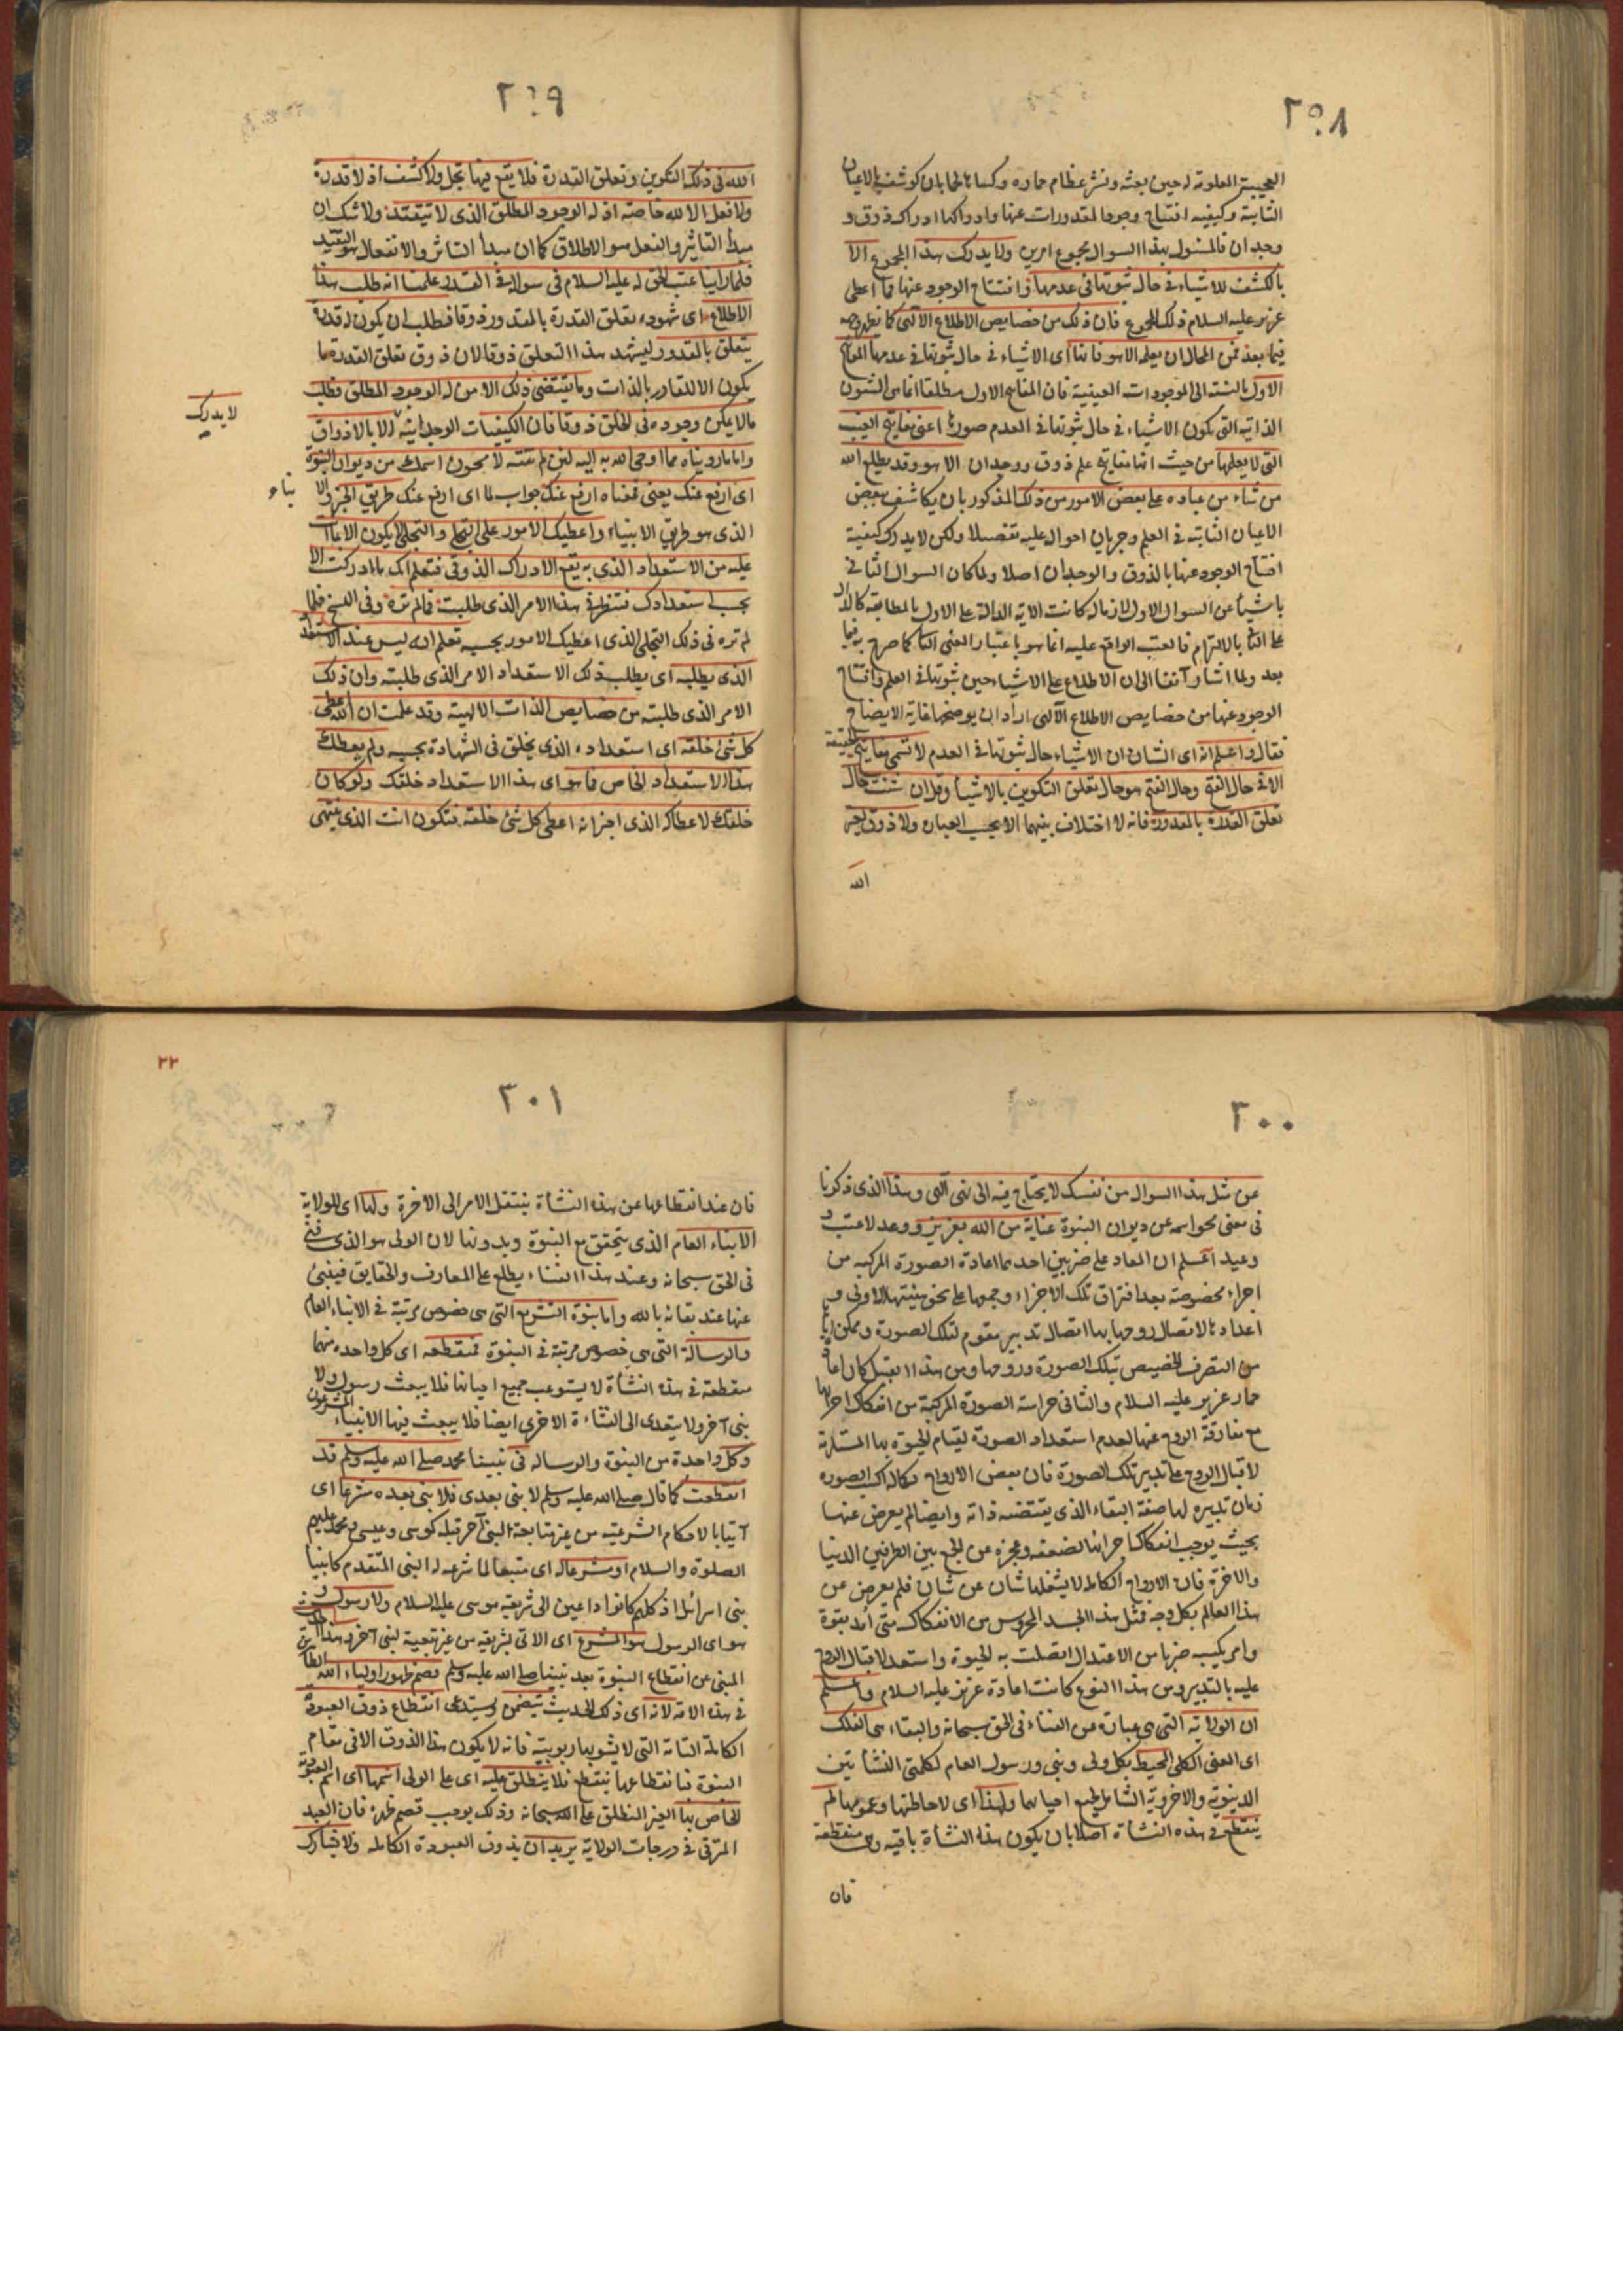 ٢٩٨
العجيبة المعلومة له حين بعثه ونشر عظام حماره وكسائها لحما بان كوشف بالاعيان
الثابتة وكيفية افتتاح وجود المقدورات عنها وادراكها ادراك ذوق و
وجدان فالمسئول بهذا السوال مجموع امرين ولا يدرك هذا المجموع الا
بالكشف للاشياء في حال ثبوتها في عدمها وافتتاح الوجود عنها فما اعطى
عزير عليه السلام ذلك المجموع فان ذلك من خصايص الاطلاع الالهى كما
فيما بعد فمن المحال ان يعلمه الا هو فانها اى الاشياء في حال ثبوتها في عدمها المفاتح
الاول بالنسبة الى الموجودات العينية فان المفاتح الاول مطلقا انما هى الشئون
الذاتية التى يكون الاشياء في حال ثبوتها في العدم صورها اعنى مفاتح الغيب
التى لا يعلمها من حيث انها مفاتح علم ذوق ووجدان الا هو وقد يطلع الله
من شاء من عباده على بعض الامور من ذلك المذكور بان يكاشف ببعض
الاعيان الثابتة في العلم وجريان احواله عليه تفصيلا ولكن لا يدرك كيفية
افتتاح الوجود عنها بالذوق والوجدان اصلا ولما كان السوال الثانى
ناشيا عن السوال الاول لازما له كانت الاية الدالة على الاول بالمطابقة كالدال
على الثانى بالالتزام فالعتب الواقع عليه انما هو باعتبار المعنى الثانى كما صرح به فيما
بعد ولما اشار آنفا الى ان الاطلاع على الاشياء حين ثبوتها في العلم وافتتاح
الوجود عنها من خصايص الاطلاع الالهى اراد ان يوضحها غاية الايضاح
فقال واعلم انه اى الشان ان الاشياء حال ثبوتها في العدم لا تسمى مفاتح حقيقة
الا في حال الفتح وحال الفتح هو حال تعلق التكوين بالاشياء وقل ان شئت حال
تعلق القدرة بالمقدور فانه لا اختلاف بينهما الا بحسب العبارة ولا ذوق لغير
الله
٢٩٩
الله في ذلك التكوين وتعلق القدرة فلا يقع فيها تجل ولا كشف اذ لا قدرة
ولا فعل الا لله خاصة اذ له الوجود المطلق الذى لا يتقيد ولا شك ان
مبدأ التاثير والفعل هو الاطلاق كما ان مبدأ التاثر والانفعال هو التقييد
فلما راينا عتب الحق له عليه السلام في سواله في القدر علمنا انه طلب هذا
الاطلاع اى شهوده تعلق القدرة بالمقدور ذوقا فطلب ان يكون له قدرة
يتعلق بالمقدور ليشهد هذا التعلق ذوقا لان ذوق تعلق القدرة ما
يكون الا للقادر بالذات وما يقتضى ذلك الا من له الوجود المطلق فطلب
مالا يمكن وجوده في الخلق ذوقا فان الكيفيات الوجدانية الا بالاذواق
لا يدرك
واما ما رويناه مما اوحى الله به اليه لئن لم تنته لا محون اسمك من ديوان النبوة
اى ارفع عنك يعنى فمعناه ارفع عنك جواب لما اى ارفع عنك طريق الخبر والا
نباء
الذى هو طريق الانبياء واعطيك الامور على التجلى والتجلى لا يكون الا بما انت
عليه من الاستعداد الذى به يقع الادراك الذوقى فتعلم انك ما ادركت الا
بحسب استعدادك فتنظر في هذا الامر الذى طلبت فما لم تره وفي النسخ فلما
لم تره في ذلك التجلى الذى اعطيك الامور بحسبه تعلم انه ليس عندك الاستعداد
الذى يطلبه اى يطلب ذلك الاستعداد الامر الذى طلبته وان ذلك
الامر الذى طلبته من خصايص الذات الالهية وقد علمت ان الله اعطى
كل شئ خلقه اى استعداده الذى يخلق في الشهادة بحسبه ولم يعطك
هذا الاستعداد الخاص فما هو اى هذا الاستعداد خلقك ولو كان
خلقك لاعطاكه الذى اخبر انه اعطى كل شئ خلقه فتكون انت الذى ينتهى
٣٠٠
عن مثل هذا السوال من نفسك لا يحتاج فيه الى نهى الهى وهذا الذى ذكرنا
في معنى محو اسمه عن ديوان النبوة عناية من الله بعزير ووعد لا عتب و
وعيد اعلم ان المعاد على ضربين احدهما اعادة الصورة المركبة من
اجزاء مخصوصة بعد افتراق تلك الاجزاء وجمعها على نحو هيئتها الاولى و
اعدادها لاتصال روحها بها اتصال تدبير مقوم لتلك الصورة
من التصرف الخصيص بتلك الصورة وروحها ومن هذا القبيل كان اعادة
حمار عزير عليه السلام والثانى حراسة الصورة المركبة من انفكاك اجزائها
مع مفارقة الروح عنها لعدم استعداد الصورة لقيام الحيوة بها المستلزمة
لاقبال الروح على تدبير تلك الصورة فان بعض الارواح
زمان تدبيره لها صفة البقاء الذى يقتضيه ذاته وايضا لم يعرض عنها
بحيث يوجب انفكاك اجزائها لضعفه وعجزه عن الجمع بين الطرفين الدنيا
والاخرة فان الارواح الكاملة لا يشغلها شان عن شان فلم يعرض عن
هذا العالم بكل وجه فمثل هذا الجسد المحروس من الانفكاك متى امد بقوة
وامر يكسبه ضربا من الاعتدال اتصلت به الحيوة واستعد لاقبال الروح
عليه بالتدبير ومن هذا النوع كانت اعادة عزير عليه السلام واعلم
ان الولاية التى هى عبارة عن الفناء في الحق سبحانه والبقاء هى الفلك
اى المعنى الكلى المحيط بكل ولى ونبى ورسول العام لكلتى النشأتين
الدنيوية والاخروية الشامل لجميع احيانها ولهذا اى لاحاطتها وعمومها لم
ينقطع في هذه النشأة اصلا بان يكون هذه النشأة باقية وهى منقطعة
فان
٢٢
٣٠١
فان عند انقطاعها عن هذه النشأة ينتقل الامر الى الاخرة ولها اى للولاية
الانباء العام الذى يتحقق مع النبوة وبدونها لان الولى هو الذى فنى
في الحق سبحانه وعند هذا الفناء يطلع على المعارف والحقايق فينبئ
عنها عند بقائه بالله واما نبوة التشريع التى هى خصوص مرتبة في الانباء العام
والرسالة التى هى خصوص مرتبة في النبوة فمنقطعة اى كل واحدة منهما
منقطعة في هذه النشأة لا يستوعب جميع احيانها فلا يبعث رسول ولا
نبى آخر ولا يتعدى الى النشاءة الاخرى ايضا فلا يبعث فيها الانبياء المشرعون
وكل واحدة من النبوة والرسالة في نبينا محمد صلى الله عليه وسلم قد
انقطعت كما قال صلى الله عليه وسلم لا نبى بعدى فلا نبى بعده مشرعا اى
آتيا بالاحكام الشرعية من غير متابعة لنبى آخر قبله كموسى وعيسى ومحمد عليهم
الصلوة والسلام او مشرعا له اى متبعا لما شرعه له النبى المتقدم كانبياء
بنى اسرائل اذ كلهم كانوا داعين الى شريعة موسى عليه السلام ولا رسول و
هو اى الرسول هو المشرع اى الاتى بشريعة من غير تبعية لنبى آخر وهذا الحديث
المنبى عن انقطاع النبوة بعد نبينا صلى الله عليه وسلم قصم ظهور اولياء الله
في هذه الامة لانه اى ذلك الحديث يتضمن ويستدعى انقطاع ذوق العبودية
الكاملة التامة التى لا يشوبها ربوبية فانه لا يكون هذا الذوق الا في مقام
النبوة فبانقطاعها ينقطع فلا ينطلق عليه اى على الولى اسمها اى اسم العبودية
الخاص بها الغير المنطلق على الله سبحانه وذلك يوجب قصم ظهره فان العبد
المترقى في درجات الولاية يريد ان يذوق العبودة الكاملة ولا يشارك